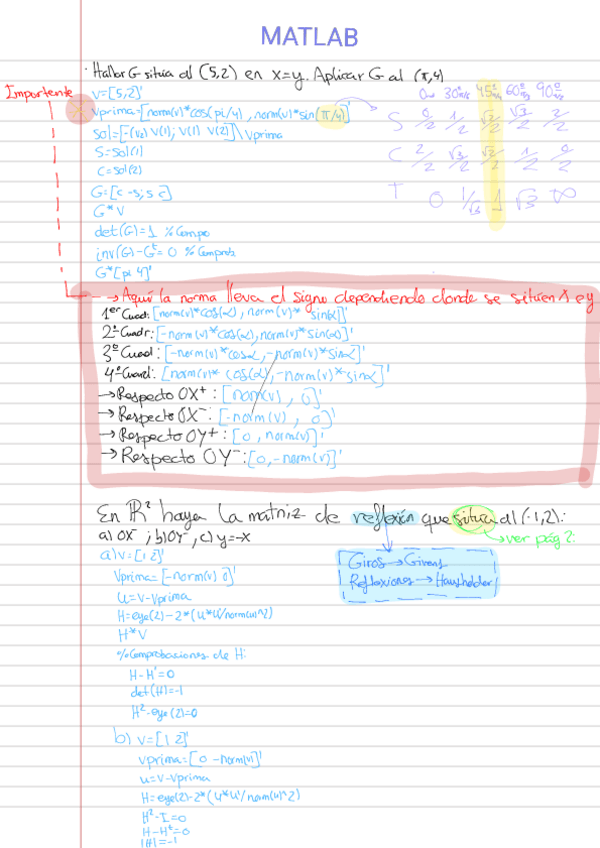 MATLAB
· Hallar G sitúa al (5,2) en x=y. Aplicar G al (π,4)
Importante
v=[5,2]'
vprima=[norm(v)*cos(pi/4), norm(v)*sin(π/4)]'
sol=[-v(2) v(1); v(1) v(2)]\vprima
S=sol(1)
C=sol(2)
G=[c -s; s c]
G*v
det(G)=1 % Compro
inv(G)-Gᵗ=0 % Comprob
G*[pi 4]'
0º 30º π/6 45º π/4 60º π/3 90º π/2
S 0/2 1/2 √2/2 √3/2 2/2
C 2/2 √3/2 √2/2 1/2 0/2
T 0 1/√3 1 √3 ∞
→ Aquí la norma lleva el signo dependiendo donde se sitúen X e y
1er Cuad: [norm(v)*cos(α), norm(v)* sinα]'
2º Cuadr: [-norm(v)*cos(α), norm(v)*sin(α)]'
3º Cuad: [-norm(v)*cosα, -norm(v)*sinα]'
4º Cuad: [norm(v)* cos(α), -norm(v)*sinα]'
→ Respecto OX⁺: [norm(v), 0]'
→ Respecto OX⁻: [-norm(v), 0]'
→ Respecto OY⁺: [0, norm(v)]'
→ Respecto OY⁻: [0, -norm(v)]'
En ℝ² haya la matriz de reflexión que sitúa al (-1,2):
a) OX⁻; b) OY⁻, c) y=-x
ver pág 2:
Giros → Givens
Reflexiones → Haushelder
a) v=[1 2]'
vprima=[-norm(v) 0]'
u=v-vprima
H=eye(2)-2*(u*u'/norm(u)^2)
H*v
% Comprobaciones de H:
H-H'=0
det(H)=-1
H²-eye(2)=0
b) v=[1 2]'
vprima=[0 -norm(v)]'
u=v-vprima
H=eye(2)-2*(u*u'/norm(u)^2)
H²-I=0
H-Hᵗ=0
|H|=-1